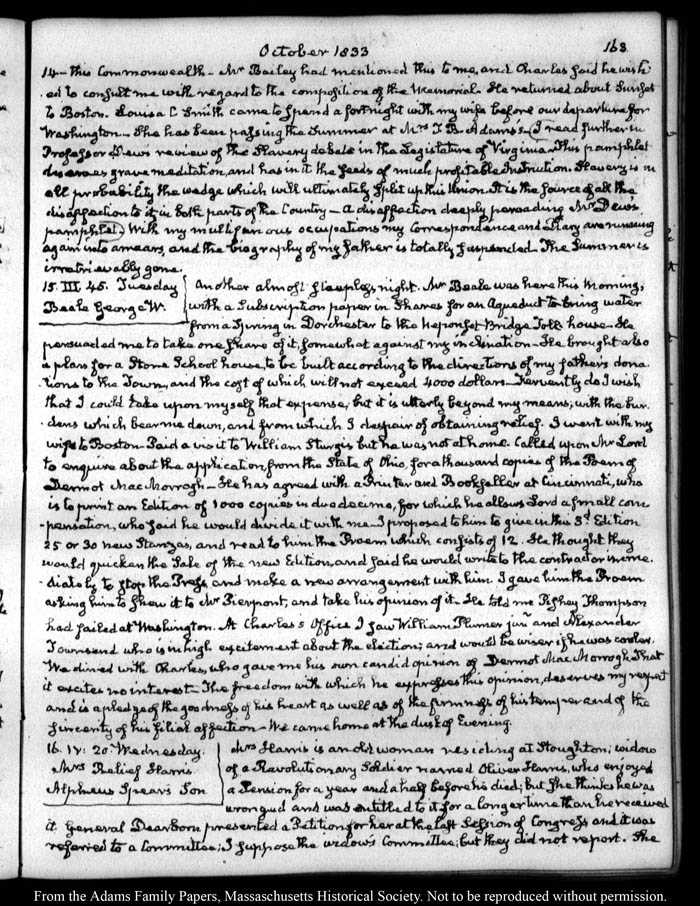 October 1833
168
14 – this Commonwealth – Mr Bailey had mentioned this to me, and Charles said he wish
ed to consult me with regard to the composition of the Memorial. He returned about Sunset
to Boston. Louisa C Smith came to spend a fortnight with my wife before our departure for
Washington – She has been passing the Summer at Mrs T. B. Adams's – I read further in
Professor Dew's review of the Slavery debate in the Legislature of Virginia. This pamphlet
deserves grave meditation, and has in it the seeds of much profitable Instruction. Slavery is in
all probability the wedge which will ultimately split up this Union. It is the source of all the
disaffection to it in both parts of the Country – a disaffection deeply pervading Mr Dew's
pamphlet. With my multifarious occupations my Correspondence and Diary are running
again into arrears, and the biography of my father is totally suspended. The Summer is
irretrievably gone.
15. III. 45. Tuesday
Beale George W.
Another almost sleepless night. Mr Beale was here this Morning,
with a Subscription paper in Shares for an Aqueduct to bring water
from a Spring in Dorchester to the Neponset Bridge Toll house – He
persuaded me to take one share of it, somewhat against my inclination – He brought also
a plan for a Stone School house, to be built according to the directions of my father's dona
tions to the Town, and the cost of which will not exceed 4000 dollars – Fervently do I wish
that I could take upon myself that expense, but it is utterly beyond my means; with the bur
dens which bear me down, and from which I despair of obtaining relief. I went with my
wife to Boston – Paid a visit to William Sturgis but he was not at home. Called upon Mr Lord
to enquire about the application, from the State of Ohio, for a thousand copies of the Poem of
Dermot MacMorrogh – He has agreed with a Printer and Bookseller at Cincinnati, who
is to print an Edition of 1000 copies in duodecimo, for which he allows Lord a small com
-pensation, who said he would divide it with me – I proposed to him to give in this 3d Edition
25 or 30 new Stanzas, and read to him the Proem which consists of 12. He thought they
would quicken the Sale of the new Edition, and said he would write to the contractor imme.
diately to stop the Press, and make a new arrangement with him. I gave him the Proem
asking him to shew it to Mr Pierpont, and take his opinion of it – He told me Pishey Thompson
had failed at Washington. At Charles's Office I saw William Plumer junr and Alexander
Townsend who is in high excitement about the election; and would be wiser if he was cooler.
We dined with Charles, who gave me his own candid opinion of Dermot MacMorrogh. That
it excites no interest – The freedom with which he expresses this opinion, deserves my respect
and is a pledge of the goodness of his heart as well as of the firmness of his temper and of the
sincerity of his filial affection – We came home at the dusk of Evening.
16. IV. 20 Wednesday.
Mrs Relief Harris
Alpheus Spear's Son
Mrs Harris is an old woman residing at Stoughton; widow
of a Revolutionary Soldier named Oliver Harris, who enjoyed
a Pension for a year and a half before he died; but She thinks he was
wronged and was entitled to it for a longer time than he received
it. General Dearborn presented a Petition for her at the last Session of Congress and it was
referred to a Committee; I suppose the widow's Committee; but they did not report. She
From the Adams Family Papers, Massachusetts Historical Society. Not to be reproduced without permission.